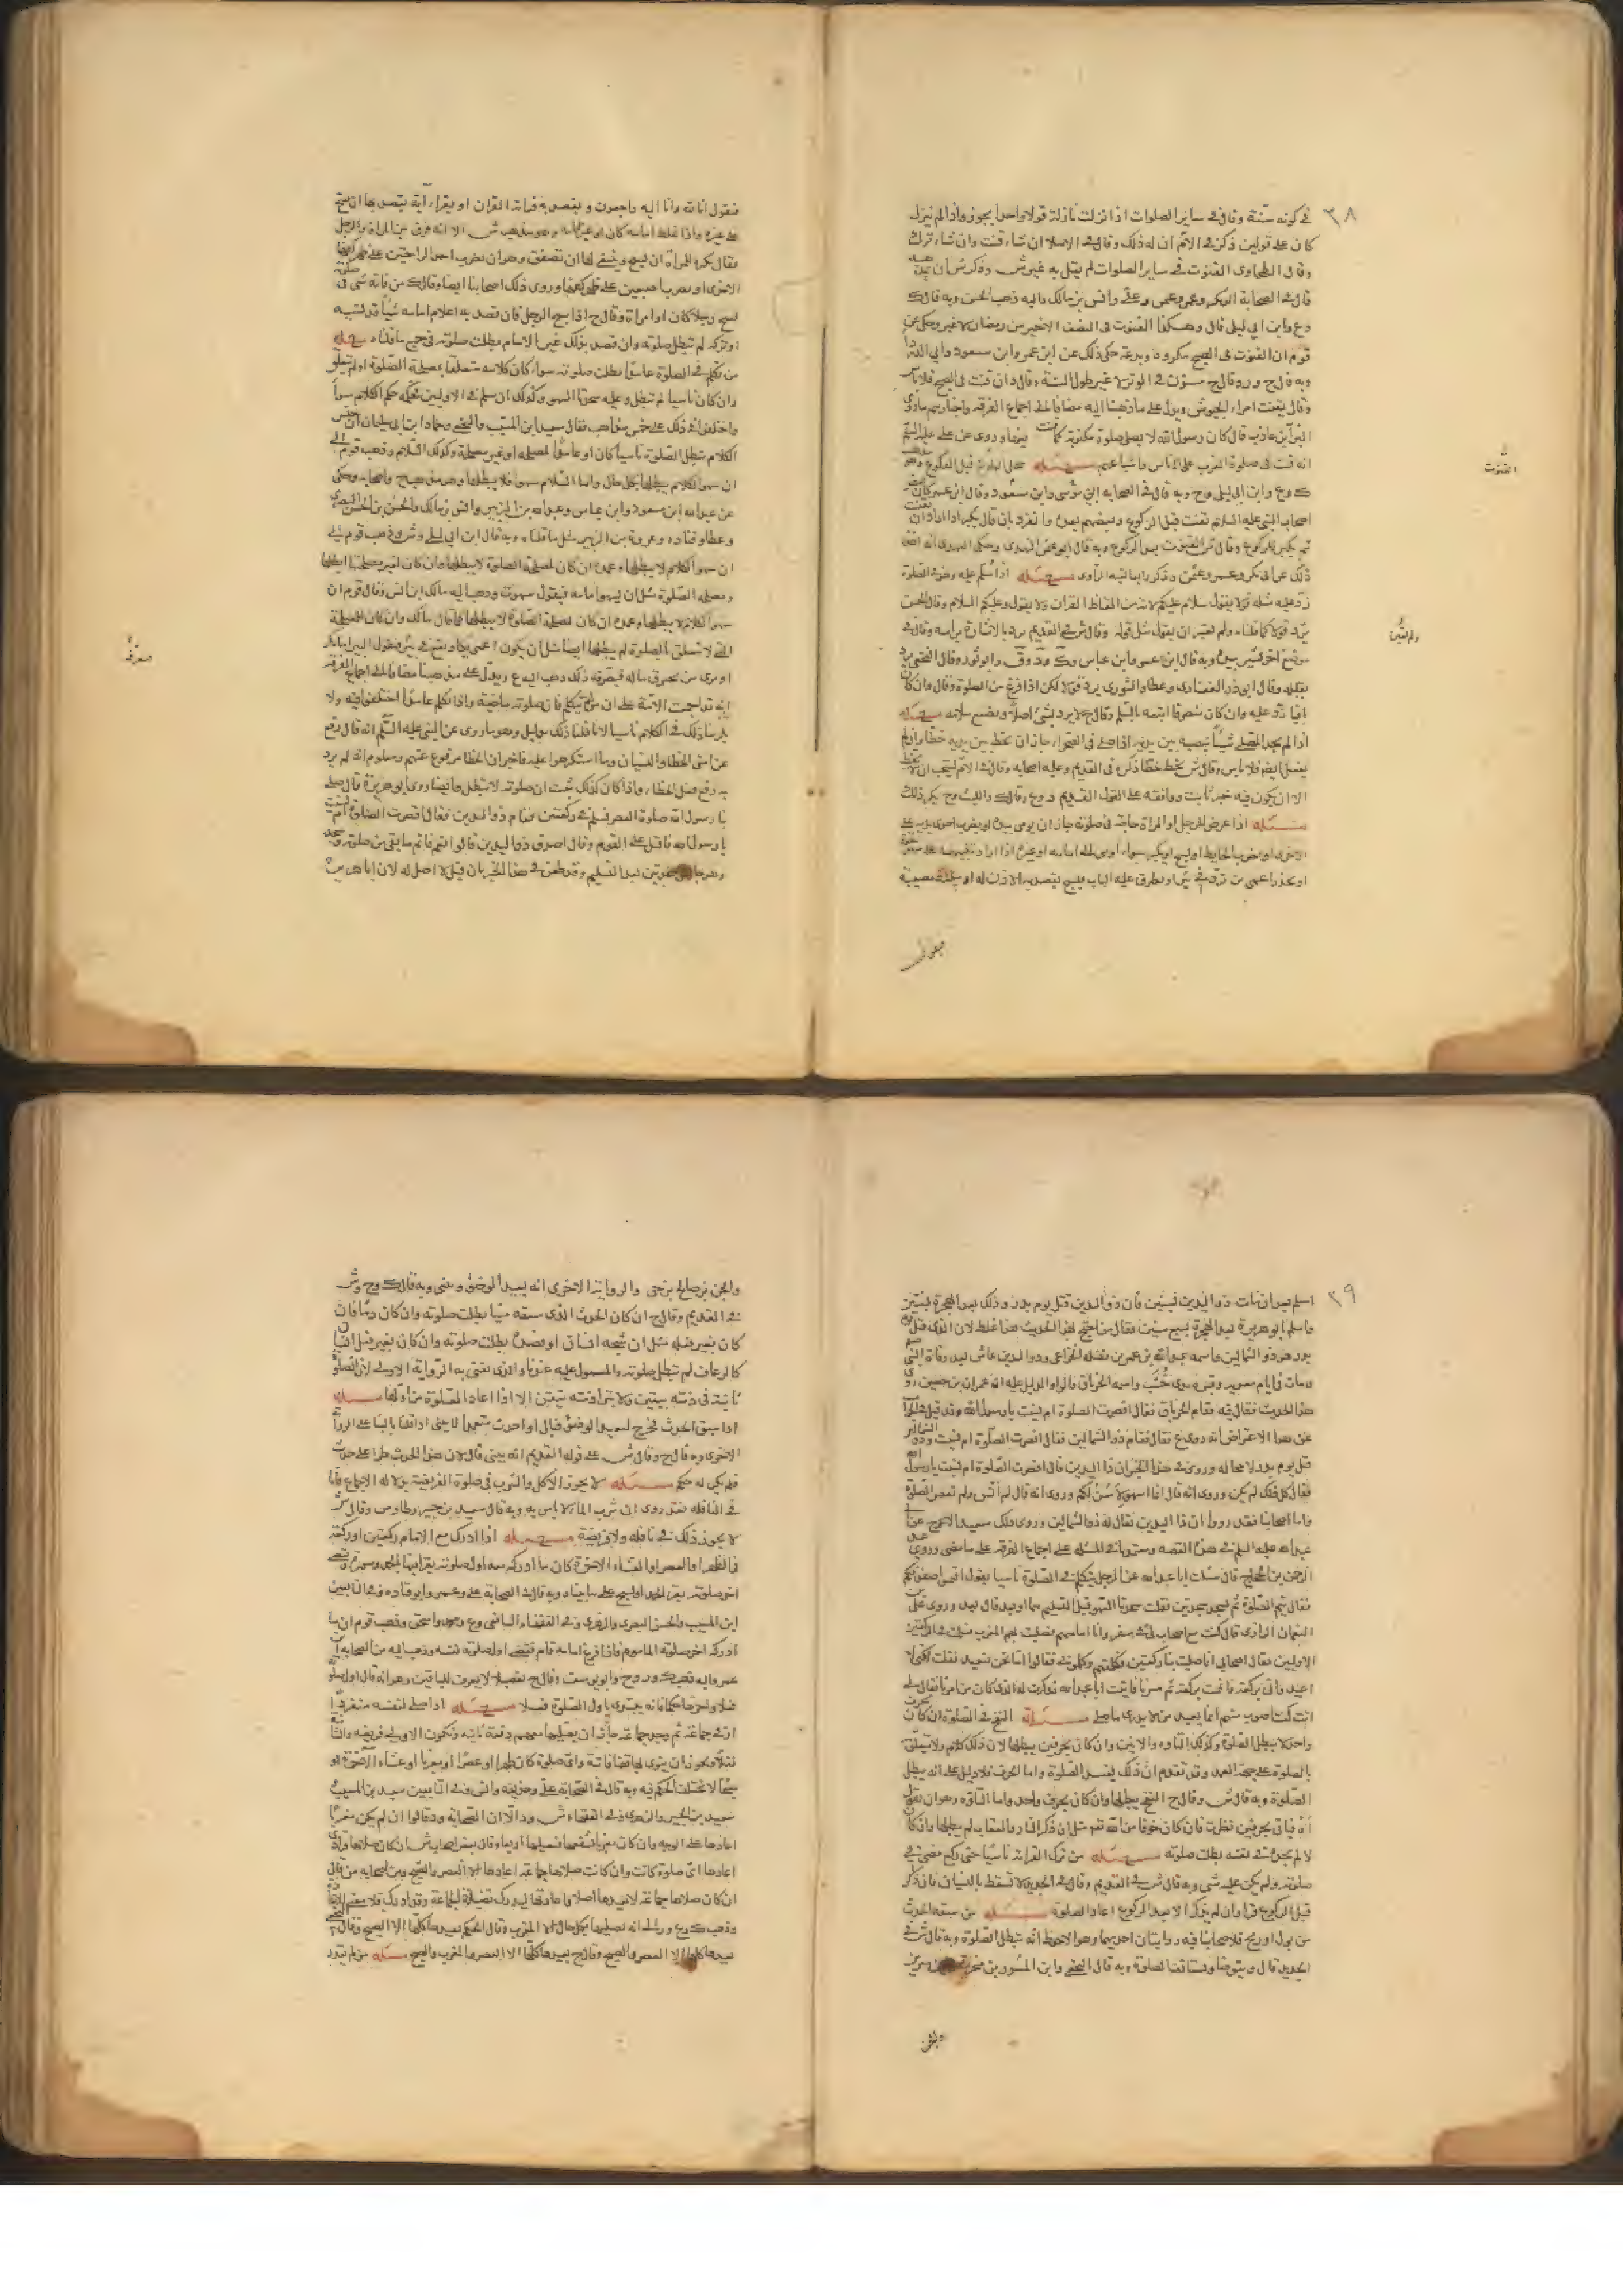 ٣٨
في كونه سنة وقال في ساير الصلوات اذا نزلت نازلة قولا واحدا يجوز واذا لم ينزل
كان على قولين ذكر في الام ان له ذلك وقال في الاملا ان شاء قنت وان شاء ترك
وقال الطحاوي القنوت في ساير الصلوات لم يقل به غير ش وذكر ش ان
قال في الصحابة ابو بكر وعمر وعلي وانس بن مالك واليه ذهب الحسن وبه قال ك
وع وابن ابي ليلى قال وهكذا القنوت في النصف الاخير من رمضان لا غير وحكي عن
قوم ان القنوت في الصبح مكروه وبدعة حكي ذلك عن ابن عمر وابن مسعود وابي الدرداء
وبه قال ح وقال ح مسنون في الوتر لا غير طول السنة وقال ان قنت في الصبح فلا باس
وقال يقنت امراء الجيوش ويدل على ما ذهبنا اليه مضافا الى اجماع الفرقه واخبارهم ما روى
البراء بن عازب قال كان رسول الله لا يصلي صلوة مكتوبة الا قنت فيها وروي عن علي عليه السلم
انه قنت في صلوة المغرب على اناس واشياعهم مسئله محل القنوت قبل الركوع وهو
وع وابن ابي ليلى وح وبه قال في الصحابه ابن مسعود وقال ابن عمر كان
اصحاب النبي عليه السلام يقنت قبل الركوع وبعضهم بعده وانفرد بان قال يكبر اذا اراد ان يقنت
ثم يكبر للركوع وقال ش القنوت بعد الركوع وبه قال ابو عثمن النهدي وحكى النهدي انه اخذ
ذلك عن ابي بكر وعمر وعثمن مسئله اذا سلم عليه وهو في الصلوة
رد عليه مثله قولا يقول سلام عليكم لانه من الفاظ القران ولا يقول وعليكم السلام وقال الحسن
يرد قولا كما قلناه ولم يعتبر ان يقول مثل قوله وقال ش في القديم يرد بالاشارة براسه وقال في
موضع اخر يشير بيده وبه قال ابن عمر وابن عباس وابو ثور وقال النخعي يرد
بقلبه وقال ابي ذر الغفاري وعطا والثوري يرد قولا لكن اذا فرغ من الصلوة وقال وان كان
باقيا رد عليه وان كان منصرفا اتبعه بالسلم وقال ح لا يرد بشئ اصلا ويضيع سلامه مسئله
اذا لم يجد المصلي شيئا ينصبه بين يديه اذا صلى في الصحراء جاز ان يخط بين يديه خطا وان لم
يفعل ايضا فلا باس وقال ش يخط خطا ذكره في القديم وعليه اصحابه وقال في الام لا يستحب ان يخط
الا ان يكون فيه خبر ثابت ووافقه على القول القديم وع وقال ك والليث وح يكره ذلك
مسئله اذا عرض للرجل او المراة حاجة في صلوته جاز ان يومي بيده او يضرب احدى يديه على
الاخرى او يضرب الحايط او يسبح او يكبر سواء
او يحذر اعمى من تردى في بئر او يطرق عليه الباب فيسبح يقصد به الاذن له او يبلغه مصيبة
فيقول
القنوت
فيقول انا لله وانا اليه راجعون ويقصد به قراءة القران او يقراء آية يقصد بها ان يفتح
على غيره واذا غلط امامه كان او غير امامه وهو مذهب ش الا انه فرق بين المراة والرجل
فقال يكره للمراة ان تسبح وينبغي لها ان تصفق وهو ان تضرب احدى الراحتين على ظهر كفها
الاخرى او تضرب اصبعين على ظهر كفها وروى ذلك اصحابنا ايضا وقال ك من نابه شئ في صلوته
سبح رجلا كان او امراة وقال ح اذا سبح الرجل فان قصد به اعلام امامه شيئا قد نسيه
او تركه لم تبطل صلوته وان قصد بذلك غير الامام بطلت صلوته في جميع ما قلناه مسئله
من تكلم في الصلوة عامدا بطلت صلوته سواء كان كلامه متعلقا بمصلحة الصلوة او لم يتعلق
وان كان ناسيا لم تبطل وعليه سجدتا السهو وكذلك ان سلم في الاوليين فحكمه حكم الكلام سواء
واختلفوا في ذلك على خمس مذاهب فقال سعيد ابن المسيب والنخعي وحماد ابن ابي سليمان ان جنس
الكلام تبطل الصلوة ناسيا كان او عامدا لمصلحة او غير مصلحة وكذلك السلام وذهب قوم الى
ان سهو الكلام يبطلها على كل حال واما السلام سهوا فلا يبطلها وهو مذهب ح واصحابه وحكي
عن عبد الله ابن مسعود وابن عباس وعبد الله بن الزبير وانس بن مالك والحسن بن الحسن البصري
وعطا وقتاده وعروة بن الزبير مثل ما قلناه وبه قال ابن ابي ليلى وش وذهب قوم الى
ان سهو الكلام لا يبطلها وعمده ان كان لمصلحة الصلوة لا يبطلها وان كان لغير مصلحتها ابطلها
ومصلحة الصلوة مثل ان يسهو امامه فيقول سهوت وذهب اليه مالك ابن انس وقال قوم ان
سهو الكلام لا يبطلها وعمده ان كان لمصلحة الصلوة لا يبطلها كما قال مالك وان كان لمصلحة
لا تتعلق بالصلوة لم يبطلها ايضا مثل ان يكون اعمى يكاد يقع في بئر فيقول البئر امامك
او يرى من يحترق ماله فيعرفه ذلك ذهب اليه ع ويدل على مذهبنا مضافا الى اجماع الفرقه
انه قد اجمعت الامة على ان من لم يتكلم فان صلوته ماضية واذا تكلم عامدا اختلفوا فيه ولا
يلزمنا ذلك في الكلام ناسيا لانا قلنا ذلك بدليل وهو ما روي عن النبي عليه السلم انه قال رفع
عن امتي الخطا والنسيان وما استكرهوا عليه فاخبر ان الخطا مرفوع عنهم ومعلوم انه لم يرد
به رفع فعل الخطاء واذا كان كذلك ثبت ان صلوته لا تبطل وايضا روى ابو هريرة قال صلى
بنا رسول الله صلوة العصر فسلم في ركعتين فقام ذو اليدين فقال اقصرت الصلوة ام نسيت
يا رسول الله فاقبل على القوم وقال اصدق ذو اليدين قالوا نعم فاتم ما بقي من صلوته وسجد
وهو جالس سجدتين بعد التسليم وقد طعن في هذا الخبر بان قيل لا اصل له لان ابا هريرة
٣٩
اسلم بعد ان مات ذو اليدين بسنين فان ذو اليدين قتل يوم بدر وذلك بعد الهجرة بسنتين
واسلم ابو هريرة بعد الهجرة بسبع سنين فقال من احتج بهذا الحديث هذا غلط لان الذي قتل يوم
بدر هو ذو الشمالين واسمه عبد الله بن عمر بن نضله الخزاعي وذو اليدين عاش بعد وفاة النبي
ومات في ايام معويه وقبره بذي خُشُب واسمه الخرباق قالوا والدليل عليه ان عمران بن حصين روى
هذا الحديث فقال فيه فقام الخرباق فقال اقصرت الصلوة ام نسيت يا رسول الله وقد قيل
عن هذا الاعتراض انه روى ع فقال فقام ذو الشمالين فقال اقصرت الصلوة ام نسيت وذو الشمالين
قتل يوم بدر لا محاله وروي في هذا الخبر ان ذا اليدين قال اقصرت الصلوة ام نسيت يا رسول الله
فقال كل ذلك لم يكن وروي انه قال انما اسهو لاَسُنّ لكم وروي انه قال لم انس ولم تقصر الصلوة
واما اصحابنا فقد رووا ان ذا اليدين يقال له ذو الشمالين وروى ذلك سعيد الاعرج عن ابي
عبد الله عليه السلم في هذه القصه ومعتمدنا في المسئلة على اجماع الفرقه على ما مضى وروى عبد
الرحمن بن الحجاج قال سالت ابا عبد الله عن الرجل يتكلم في الصلوة ناسيا يقول اقيموا صفوفكم
فقال يتم الصلوة ثم يسجد سجدتين فقلت سجدتا السهو قبل التسليم هما او بعد قال بعد وروى علي بن
النعمان الرازي قال كنت مع اصحاب لي في سفر وانا امامهم فصليت بهم المغرب فسلمت في الركعتين
الاوليين فقال اصحابي انما صليت بنا ركعتين فكلمتهم وكلموني فقالوا اما نحن فنعيد فقلت لكني لا
اعيد واتم بركعة فاتممت بركعة ثم سرنا فاتيت ابا عبد الله فذكرت له الذي كان من امرنا فقال لي
انت كنت اصوب منهم انما يعيد من لا يدري ما صلى مسئله النفخ في الصلوة ان كان بحرف
واحد لا يبطل الصلوة وكذلك التاوه والانين وان كان بحرفين يبطلها لان ذلك كلام ولا يتعلق
بالصلوة على جهة العمد وقد تقدم ان ذلك يفسد الصلوة واما الحرف فلا دليل على انه يبطل
الصلوة وبه قال ش وقال ح النفخ يبطلها وان كان بحرف واحد واما التاوه وهو ان يقول
اَهْ فياتي بحرفين نظرت فان كان خوفا من الله تعالى مثل ان ذكر النار والعقاب لم يبطلها وان كان
لالم يجده في نفسه بطلت صلوته مسئله من ترك القراءة ناسيا حتى ركع مضى في
صلوته ولم يكن عليه شئ وبه قال ش في القديم وقال في الجديد لا تسقط بالنسيان فان ذكر
قبل الركوع قرا وان لم يذكر الا بعد الركوع اعاد الصلوة مسئله من سبقه الحدث
من بول او ريح فلاصحابنا فيه روايتان احديهما وهو الاحوط انه تبطل الصلوة وبه قال ش في
الجديد قال ويتوضا ويستانف الصلوة وبه قال النخعي وابن المسور بن مخرمة وابن سيرين
والحسن
والحسن بن صالح بن حي والرواية الاخرى انه يعيد الوضوء ويبني وبه قال ك وح وش
في القديم وقال ح ان كان الحدث الذي سبقه منيا بطلت صلوته وان كان دما فان
كان بغير فعله مثل ان شجه انسان او فصده بطلت صلوته وان كان بغير فعل انسان
كالرعاف لم تبطل صلوته والمعمول عليه عندنا والذي نفتي به الرواية الاولى لان الصلوة
ثابتة في ذمته بيقين ولا تبرا ذمته بيقين الا اذا اعاد الصلوة من اولها مسئله
اذا سبق الحدث فخرج ليعيد الوضوء فبال او احدث متعمدا لا يبني اذا قلنا بالبنا على الرواية
الاخرى وبه قال ح وقال ش على قوله القديم انه يبني قال لان هذا الحدث طرا على حدث
فلم يكن له حكم مسئله لا يجوز الاكل والشرب في صلوة الفريضة بدلالة الاجماع فاما
في النافله فقد روي ان شرب الماء لا باس به وبه قال سعيد بن جبير وطاوس وقال ش
لا يجوز ذلك في نافله ولا فريضة مسئله اذا ادرك مع الامام ركعتين او ركعة
في الظهر او العصر او العشاء الاخرة كان ما ادركه معه اول صلوته يقرا فيها الحمد وسورة ويقضي
اخر صلوته يقرا الحمد او يسبح على ما بيناه وبه قال في الصحابة علي وعمر وابو قتاده وفي التابعين
ابن المسيب والحسن البصري والزهري وفي الفقهاء الشافعي وع واحمد واسحق وذهب قوم ان ما
ادركه اخر صلوته الماموم فاذا فرغ امامه قام فيقضي اول صلوة نفسه وذهب اليه من الصحابة ابن
عمر واليه ذهب ك وح وابو يوسف وقال ح تفصيلا لا يعرف للباقين وهو انه قال اول صلوة
فعلا واخرها حكما فانه يبتدي باول الصلوة فعلا مسئله اذا صلى لنفسه منفردا
او في جماعة ثم وجد جماعة جاز ان يصليها معهم دفعة ثانية وتكون الاولى فريضه والثانية
نفلا ويجوز ان ينوي بها قضا فائتة واي صلوة كان ظهرا او عصرا او مغربا او عشاء الاخرة او
صبحا لا يختلف الحكم فيه وبه قال في الصحابة علي وحذيفة وانس وفي التابعين سعيد بن المسيب
وسعيد بن الجبير والزهري وفي الفقهاء ش الا ان الصحابة وقالوا ان لم يكن مغربا
اعادها على الوجه وان كان مغربا يشفعها فيصليها اربعا وقال بعض اصحاب ش ان كان صلاها فرادى
اعادها اي صلوة كانت وان كانت صلاها جماعة اعادها الا العصر والصبح ومن اصحابه من قال
ان كان صلاها جماعة لا يعيدها اصلا وقد ادرك فلا معنى للاعادة
وذهب ك وع الى انه يصليها بكل حال الا المغرب وقال الحكم يعيدها كلها الا الصبح وقال النخعي
يعيدها كلها الا العصر والصبح وقال ح يعيدها كلها الا العصر والمغرب والصبح مسئله من لم يقدر